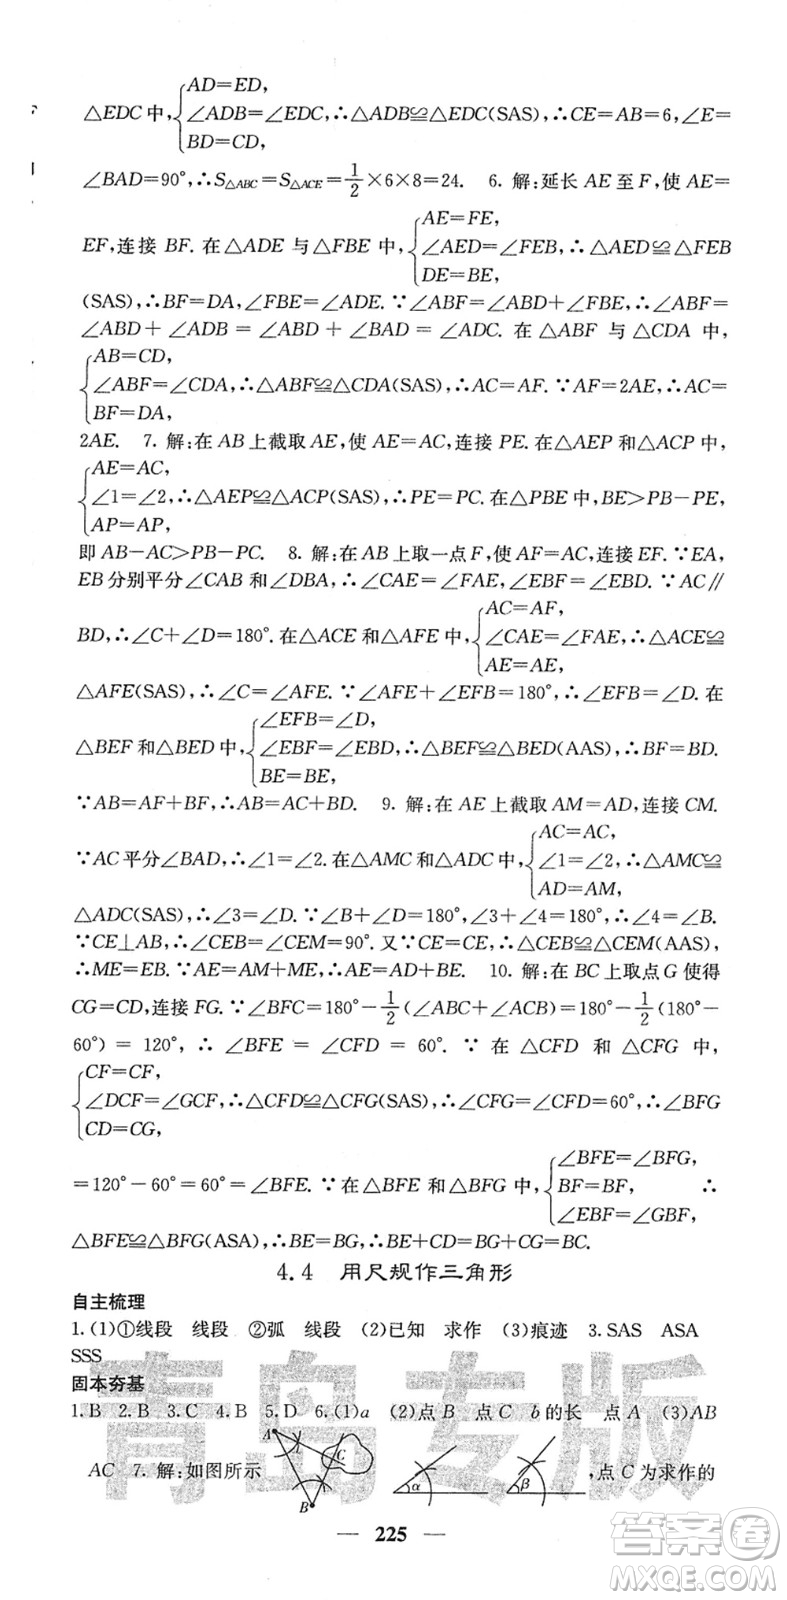 △EDC中,{AD=ED, ∠ADB=∠EDC, BD=CD, ∴△ADB≌△EDC(SAS),∴CE=AB=6,∠E=
∠BAD=90°,∴S△ABC=S△ACE=1/2×6×8=24. 6. 解:延长AE至F,使AE=
EF,连接BF. 在△ADE与△FBE中,{AE=FE, ∠AED=∠FEB, DE=BE, ∴△AED≌△FEB
(SAS),∴BF=DA,∠FBE=∠ADE. ∵∠ABF=∠ABD+∠FBE,∴∠ABF=
∠ABD+∠ADB=∠ABD+∠BAD=∠ADC. 在△ABF与△CDA中,
{AB=CD, ∠ABF=∠CDA, BF=DA, ∴△ABF≌△CDA(SAS),∴AC=AF. ∵AF=2AE,∴AC=
2AE. 7. 解:在AB上截取AE,使AE=AC,连接PE. 在△AEP和△ACP中,
{AE=AC, ∠1=∠2, AP=AP, ∴△AEP≌△ACP(SAS),∴PE=PC. 在△PBE中,BE>PB-PE,
即AB-AC>PB-PC. 8. 解:在AB上取一点F,使AF=AC,连接EF. ∵EA,
EB分别平分∠CAB和∠DBA,∴∠CAE=∠FAE,∠EBF=∠EBD. ∵AC∥
BD,∴∠C+∠D=180°. 在△ACE和△AFE中,{AC=AF, ∠CAE=∠FAE, AE=AE, ∴△ACE≌
△AFE(SAS),∴∠C=∠AFE. ∵∠AFE+∠EFB=180°,∴∠EFB=∠D. 在
△BEF和△BED中,{∠EFB=∠D, ∠EBF=∠EBD, BE=BE, ∴△BEF≌△BED(AAS),∴BF=BD.
∵AB=AF+BF,∴AB=AC+BD. 9. 解:在AE上截取AM=AD,连接CM.
∵AC平分∠BAD,∴∠1=∠2. 在△AMC和△ADC中,{AC=AC, ∠1=∠2, AD=AM, ∴△AMC≌
△ADC(SAS),∴∠3=∠D. ∵∠B+∠D=180°,∠3+∠4=180°,∴∠4=∠B.
∵CE⊥AB,∴∠CEB=∠CEM=90°. 又∵CE=CE,∴△CEB≌△CEM(AAS),
∴ME=EB. ∵AE=AM+ME,∴AE=AD+BE. 10. 解:在BC上取点G使得
CG=CD,连接FG. ∵∠BFC=180°-1/2(∠ABC+∠ACB)=180°-1/2(180°-
60°)=120°,∴∠BFE=∠CFD=60°. ∵在△CFD和△CFG中,
{CF=CF, ∠DCF=∠GCF, CD=CG, ∴△CFD≌△CFG(SAS),∴∠CFG=∠CFD=60°,∴∠BFG
=120°-60°=60°=∠BFE. ∵在△BFE和△BFG中,{∠BFE=∠BFG, BF=BF, ∠EBF=∠GBF, ∴
△BFE≌△BFG(ASA),∴BE=BG,∴BE+CD=BG+CG=BC.
4.4 用尺规作三角形
自主梳理
1.(1)①线段 线段 ②弧 线段 (2)已知 求作 (3)痕迹 3.SAS ASA
SSS
固本夯基
1.B 2.B 3.C 4.B 5.D 6.(1)a (2)点B 点C b的长 点A (3)AB
AC 7. 解:如图所示 A C B α β ,点C为求作的
225
青岛专版
答案圈
MXQE.COM